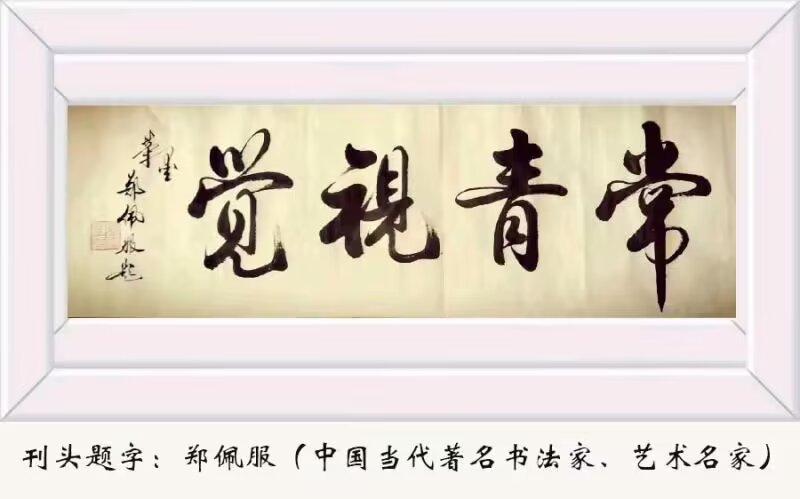 常青視觉
華墨
郑佩服題
刊头题字：郑佩服（中国当代著名书法家、艺术名家）